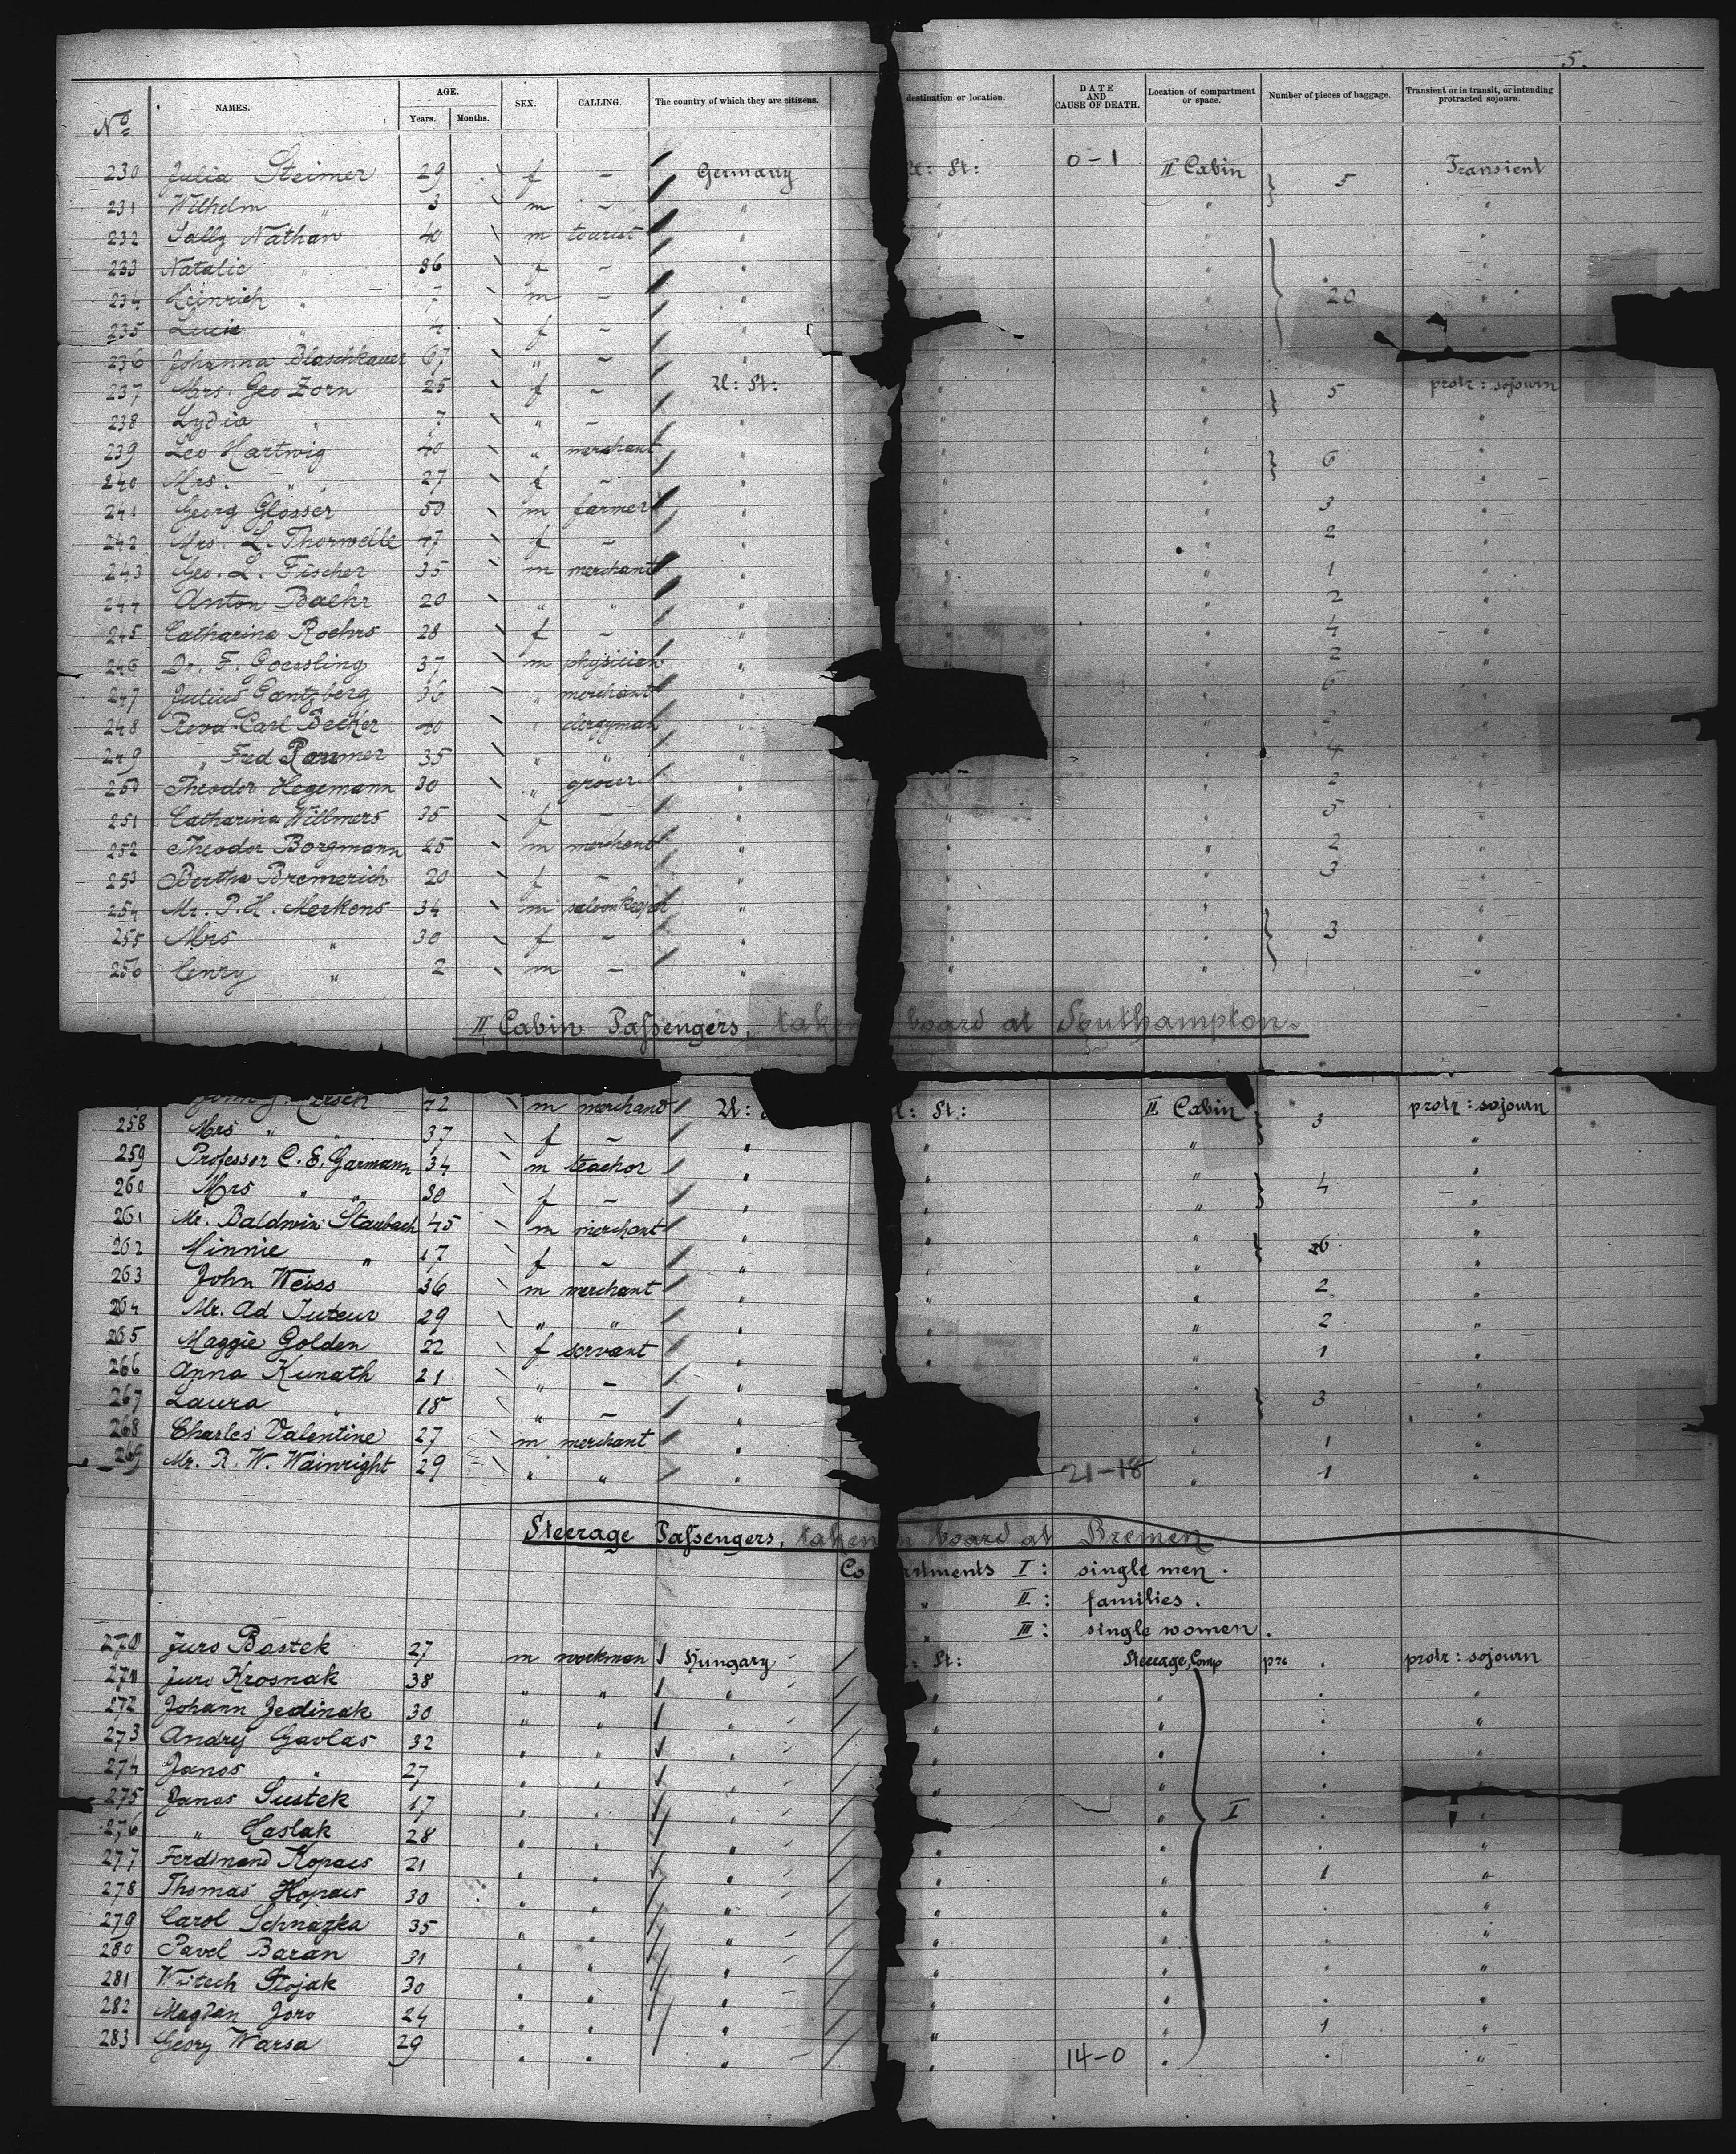 5.
No NAMES. AGE. Years. Months. SEX. CALLING. The country of which they are citizens. destination or location. DATE AND CAUSE OF DEATH. Location of compartment or space. Number of pieces of baggage. Transient or in transit, or intending protracted sojourn.
230 Julia Steimer 29 f - Germany U: St: 0-1 II Cabin 5 Transient
231 Wilhelm " 3 m - " " " "
232 Sally Nathan 40 m tourist " " " "
233 Natalie " 36 f - " " " "
234 Heinrich " 7 m - " " 20 "
235 Lucie " 4 f - " " "
236 Johanna Blaschkauer 67 " - " " "
237 Mrs. Geo Zorn 25 f - U: St: " " 5 protr: sojourn
238 Lydia " 7 " - " " " "
239 Leo Hartwig 40 " merchant " " " 6 "
240 Mrs. " 27 f - " " " "
241 Georg Glosser 50 m farmer " " " 3 "
242 Mrs. L. Thorwelle 47 f - " " " 2 "
243 Geo. L. Fischer 35 m merchant " " " 1 "
244 Anton Baehr 20 " " " " 2 "
245 Catharina Roehrs 28 f - " " 4 "
246 Dr. F. Goessling 37 m physician " " 2 "
247 Julius Gantzberg 36 " merchant " " 6 "
248 Revd. Carl Becker 40 " clergyman " " 2 "
249 " Fred Rammer 35 " " " " 4 "
250 Theodor Hegemann 30 " grocer " " 2 "
251 Catharina Willmers 35 f - " " " 5 "
252 Theodor Borgmann 25 m merchant " " " 2 "
253 Bertha Bremerich 20 f - " " " 3 "
254 Mr. P. H. Merkens 34 m saloonkeeper " " " "
255 Mrs " 30 f - " " " 3 "
256 Henry " 2 m - " " " "
II Cabin Passengers, taken board at Southampton.
42 m merchant U: St: II Cabin 3 protr: sojourn
258 Mrs " " 37 f - " " " "
259 Professor C. E. Garmann 34 m teacher " " " "
260 Mrs " " 30 f - " " " 4 "
261 Mr. Baldwin Staubach 45 m merchant " " " "
262 Minnie " 17 f - " " " 6 "
263 John Weiss 36 m merchant " " " 2 "
264 Mr. Ad Juteur 29 " " " " " 2 "
265 Maggie Golden 22 f servant " " " 1 "
266 Anna Kunath 21 " - " " "
267 Laura " 18 " - " " 3 "
268 Charles Valentine 27 m merchant " " 1 "
269 Mr. R. W. Wainright 29 " " " 21-18 " 1 "
Steerage Passengers, taken board at Bremen
Co rtments I: single men.
" II: families.
" III: single women.
270 Jurs Bastek 27 m workman Hungary St: Steerage, Comp pce . protr: sojourn
271 Juro Krosnak 38 " " " " " . "
272 Johann Jedinak 30 " " " " " . "
273 Andry Gavlas 32 " " " " " . "
274 Janos " 27 " " " " " . "
275 Janos Sustek 17 " " " " " I . "
276 " Haslak 28 " " " " " . "
277 Ferdinand Kopacs 21 " " " " " 1 "
278 Thomas Kopacs 30 " " " " " . "
279 Carol Schnazka 35 " " " " " . "
280 Pavel Baran 31 " " " " " . "
281 Witech Stojak 30 " " " " " . "
282 Magdan Joro 24 " " " " " 1 "
283 Georg Warsa 29 " " " " 14-0 " . "